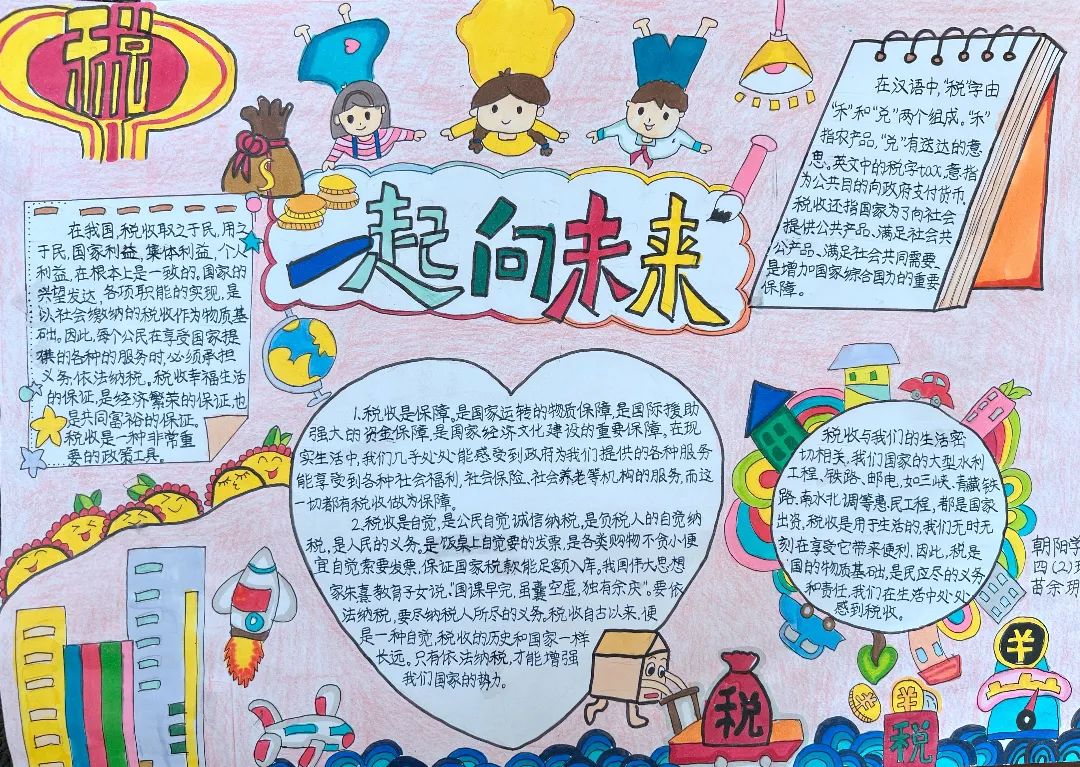 税
一起向未来
在我国,税收取之于民,用之
于民,国家利益、集体利益、个人
利益,在根本上是一致的。国家的
兴望发达,各项职能的实现,是
以社会缴纳的税收作为物质基
础。因此,每个公民在享受国家提
供的各种的服务时,必须承担
义务,依法纳税。税收幸福生活
的保证,是经济繁荣的保证,也
是共同富裕的保证。
税收是一种非常重
要的政策工具。
在汉语中,"税"字由
"禾"和"兑"两个组成。"禾"
指农产品,"兑"有送达的意
思。英文中的税字tax,意指
为公共目的向政府支付货币,
税收还指国家为了向社会
提供公共产品、满足社会共
公产品、满足社会共同需要,
是增加国家综合国力的重要
保障。
1.税收是保障,是国家运转的物质保障,是国际援助
强大的资金保障,是国家经济文化建设的重要保障。在现
实生活中,我们几乎处处能感受到政府为我们提供的各种服务
能享受到各种社会福利,社会保险、社会养老等机构的服务,而这
一切都有税收做为保障。
2.税收是自觉,是公民自觉诚信纳税,是负税人的自觉纳
税,是人民的义务。是饭桌上自觉要的发票,是各类购物不贪小便
宜自觉索要发票,保证国家税款能足额入库。我国伟大思想
家朱熹教育子女说:"国课早完,虽囊空虚,独有余庆"。要依
法纳税,要尽纳税人所尽的义务,税收自古以来,便
是一种自觉,税收的历史和国家一样
长远。只有依法纳税,才能增强
我们国家的势力。
税收与我们的生活密
切相关,我们国家的大型水利
工程、铁路、邮电,如三峡、青藏铁
路,南水北调等惠民工程,都是国家
出资,税收是用于生活的,我们无时无
刻在享受它带来便利,因此,税是
国的物质基础,是民应尽的义务
和责任,我们在生活中处处
感到税收。
朝阳学
四(2)班
苗余玥
税
税